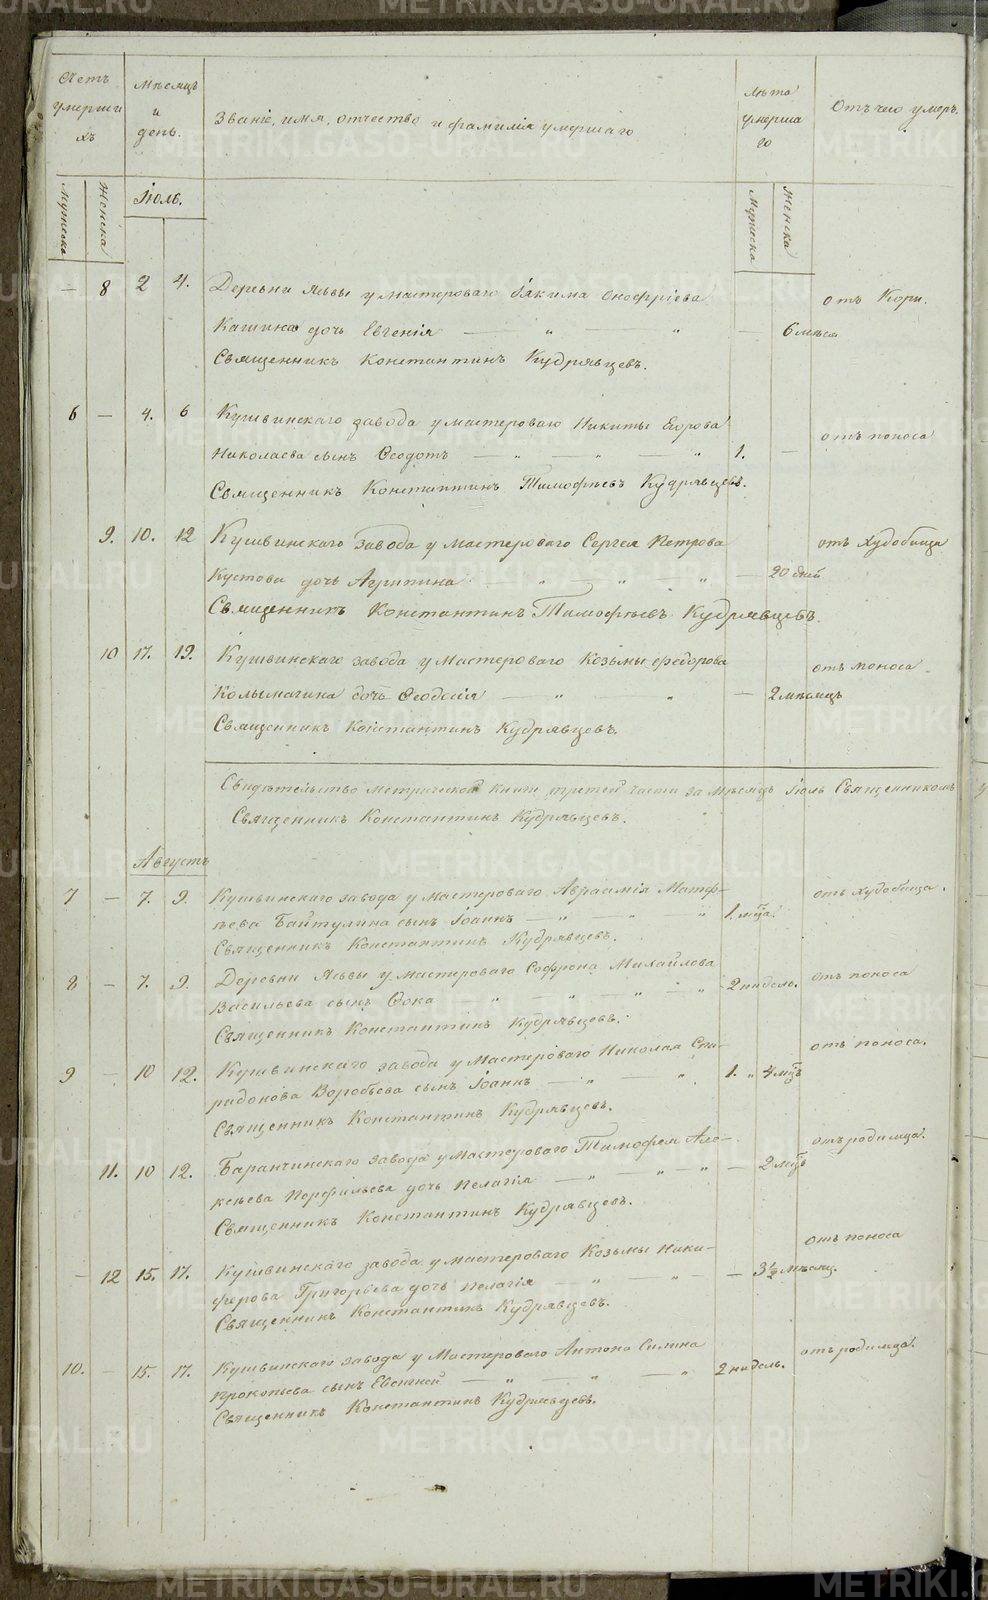 Счетъ умерши хъ
Мѣсяцъ и день.
Званіе, имя, отчество и фамилія умершаго
лѣта умерша го
Отъ чего умеръ.
Мужеска
Женска
Іюль.
Мужеска
Женска
— 8 2 4. Деревни Яввы у мастероваго Іякима Онофріева отъ Кори.
Кашина дочь Евгенія — „ — „ — 6 мѣся
Священникъ Константинъ Кудрявцевъ.
6 — 4. 6 Кушвинскаго завода у мастероваго Никиты Егорова отъ поноса
Николаева сынъ Ѳеодотъ — „ — „ — „ 1. —
Священникъ Константинъ Тимофѣевъ Кудрявцевъ.
9. 10. 12 Кушвинскаго завода у мастероваго Сергея Петрова отъ худобища
Кустова дочь Агрипина — „ — „ „ — 20 дней
Священникъ Константинъ Тимофѣевъ Кудрявцевъ.
10 17. 19. Кушвинскаго завода у мастероваго Козьмы Федорова отъ поноса
Колымагина дочь Ѳеодосія — „ — „ — 2 мѣсяцъ
Священникъ Константинъ Кудрявцевъ.
Свидѣтельство метрической книги третей части за мѣсяцъ Іюль Священникомъ
Священникъ Константинъ Кудрявцевъ.
Августъ
7 — 7. 9. Кушвинскаго завода у мастероваго Авраамія Матф- отъ худобища.
ѣева Байтулина сынъ Іоаннъ — „ — „ „ 1. мца.
Священникъ Константинъ Кудрявцевъ.
8 — 7. 9. Деревни Яввы у мастероваго Софрона Михайлова отъ поноса
Васильева сынъ Ѳока „ — „ — „ — „ 2 нидѣле.
Священникъ Константинъ Кудрявцевъ.
9 — 10 12. Кушвинскаго завода у мастероваго Николая Спи- отъ поноса.
ридонова Воробьева сынъ Іоаннъ — „ — „ 1. „ 4 мцъ
Священникъ Константинъ Кудрявцевъ.
11. 10 12. Баранчинскаго завода у мастероваго Тимофея Але- отъ родимца.
ксѣева Перфильева дочь Пелагія — „ — „ — „ — 2 мцъ
Священникъ Константинъ Кудрявцевъ.
— 12 15. 17. Кушвинскаго завода у мастероваго Козьмы Ники- отъ поноса
ферова Григорьева дочь Пелагія „ — „ — — 3½ мѣсяц.
Священникъ Константинъ Кудрявцевъ.
10. — 15. 17. Кушвинскаго завода у Мастероваго Антона Силина отъ родимца.
Прокопьева сынъ Евгеній — „ — „ — „ 2 нидѣль.
Священникъ Константинъ Кудрявцевъ.
METRIKI.GASO-URAL.RU